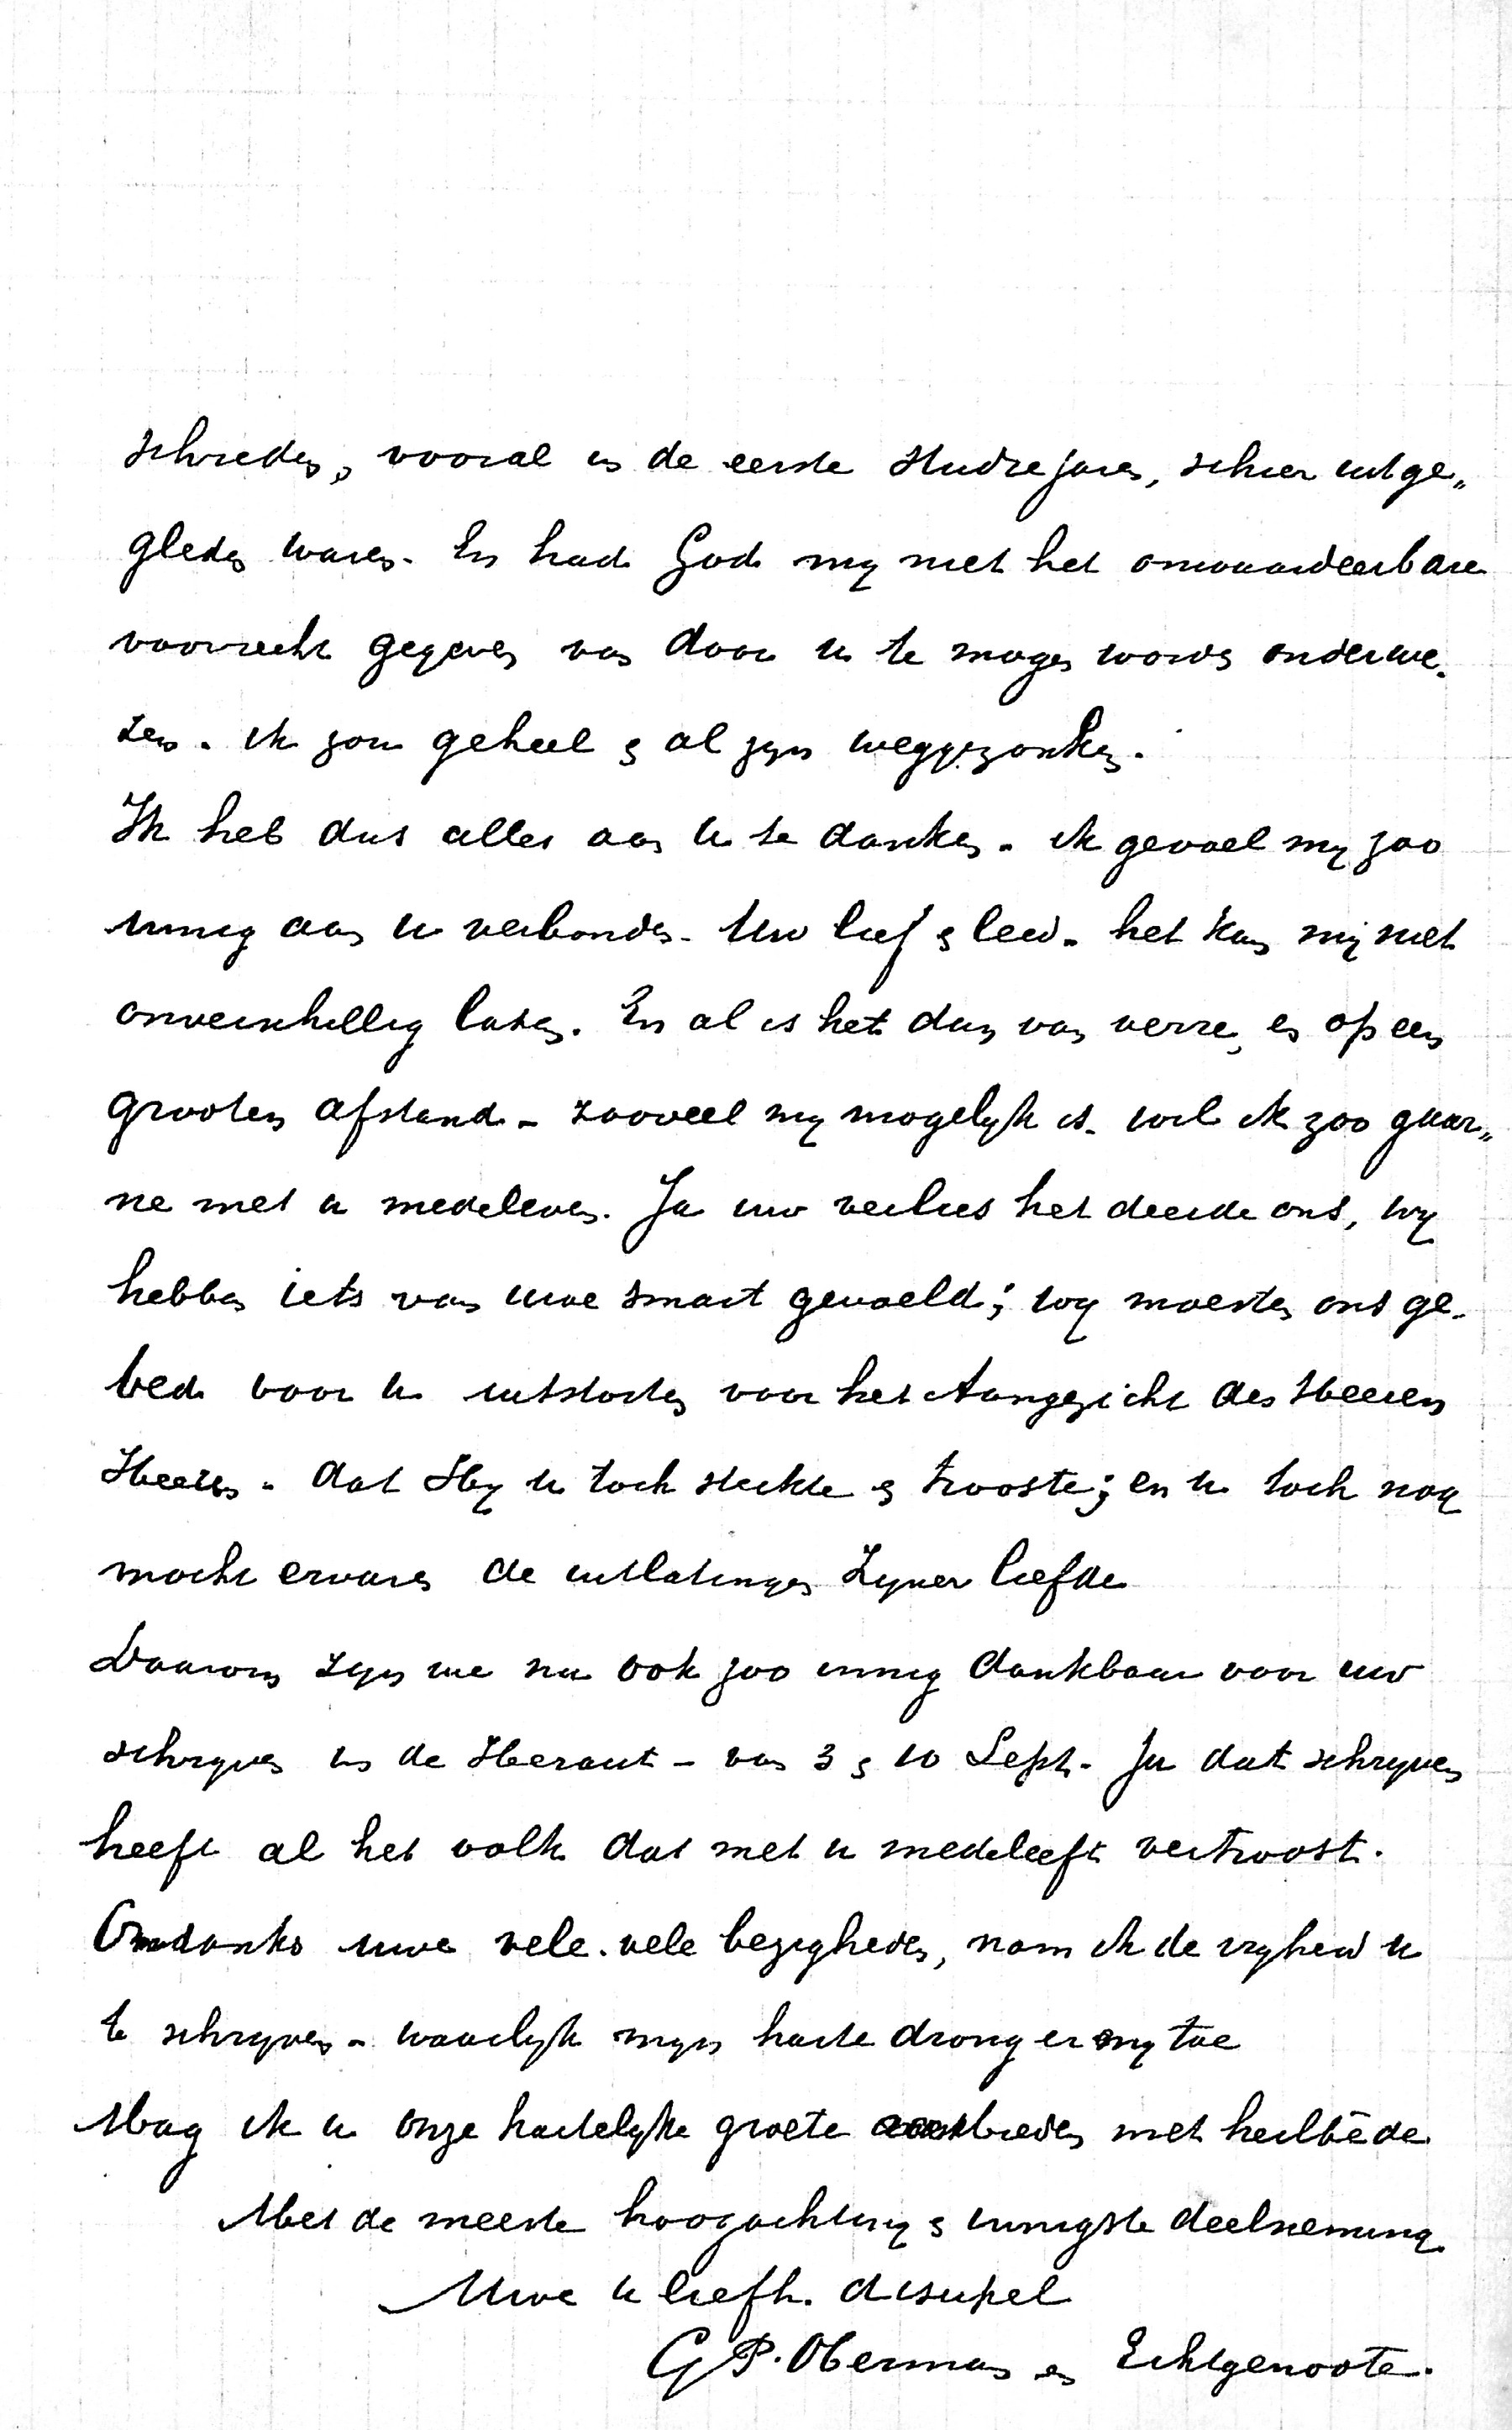 schreden, vooral in de eerste studiejaren, schier uitge„
gleden waren. En had God mij niet het onwaardeerbare
voorrecht gegeven van door u te mogen worden onderwe„
zen. ik zou geheel & al zijn weggezonken.
Ik heb dus alles aan u te danken. ik gevoel mij zoo
innig aan u verbonden. Uw lief & leed. het kan mij niet
onverschillig laten. En al is het dan van verre, en op een
grooten afstand. zooveel mij mogelijk is. wil ik zoo gaar„
ne met u medeleven. Ja uw verlies het deerde ons, wij
hebben iets van uwe smart gevoeld; wij moesten ons ge-
bed voor u uitstorten voor het Aangezicht des Heeren
Heeren. dat Hij u toch sterkte & trooste; en u toch nog
mocht ervaren de uitlatingen Zijner liefde
Daarom zijn we nu ook zoo innig dankbaar voor uw
schrijven in de Heraut - van 3 & 10 Sept. Ja dat schrijven
heeft al het volk dat met u medeleeft vertroost.
Ondanks uwe vele. vele bezigheden, nam ik de vrijheid u
te schrijven. waarlijk mijn harte drong er mij toe
Mag ik u onze hartelijke groete aanbieden met heilbede
Met de meeste hoogachting & innigste deelneming
Uwe u liefh. discipel
G P. Oberman en Echtgenoote.